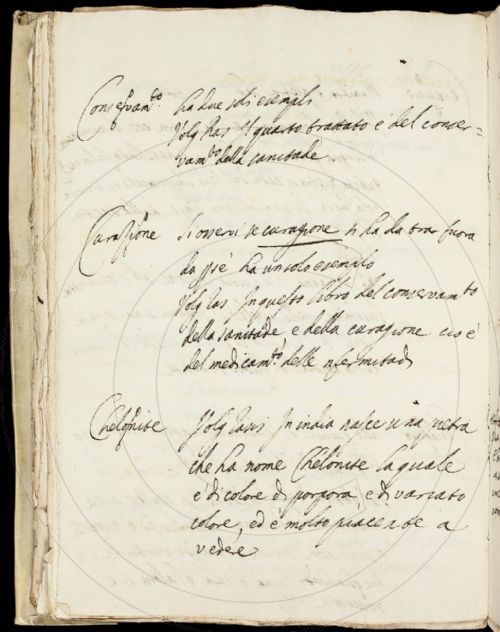 Conservam.to ha due soli esempli
Volg Ras Il quarto trattato è del conser=
vam.to della sanitade
Curagione Si osservi se curagione si ha da trar fuora
da sè ha un solo esempio
Volg Ras In questo libro del conservam.to
della sanitade e della curagione cioè
del medicam.to delle nfermitadi
Chelonite Volg In india nasce una pietra
che ha nome Chelonite la quale
è di colore di porpora, e di variato
colore, ed è molto piacente a
vedere